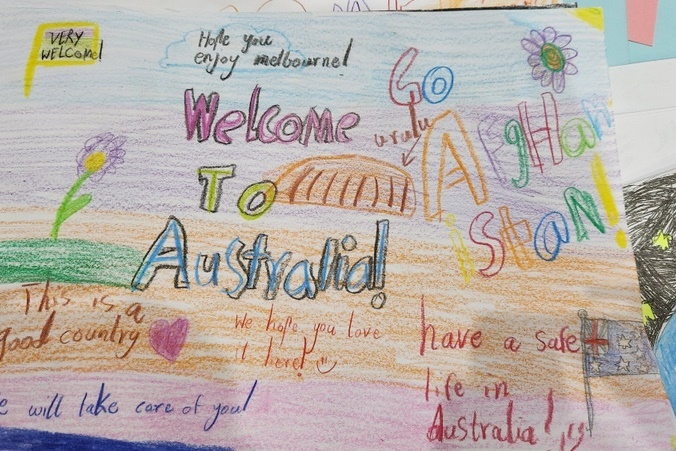 VERY
WELCOME!
Hope you
enjoy melbourne!
GO
AFgHan
istan!
Welcome
To
Australia!
urulu
This is a
good country
We hope you love
it here!
have a safe
life in
Australia!
will take care of you!